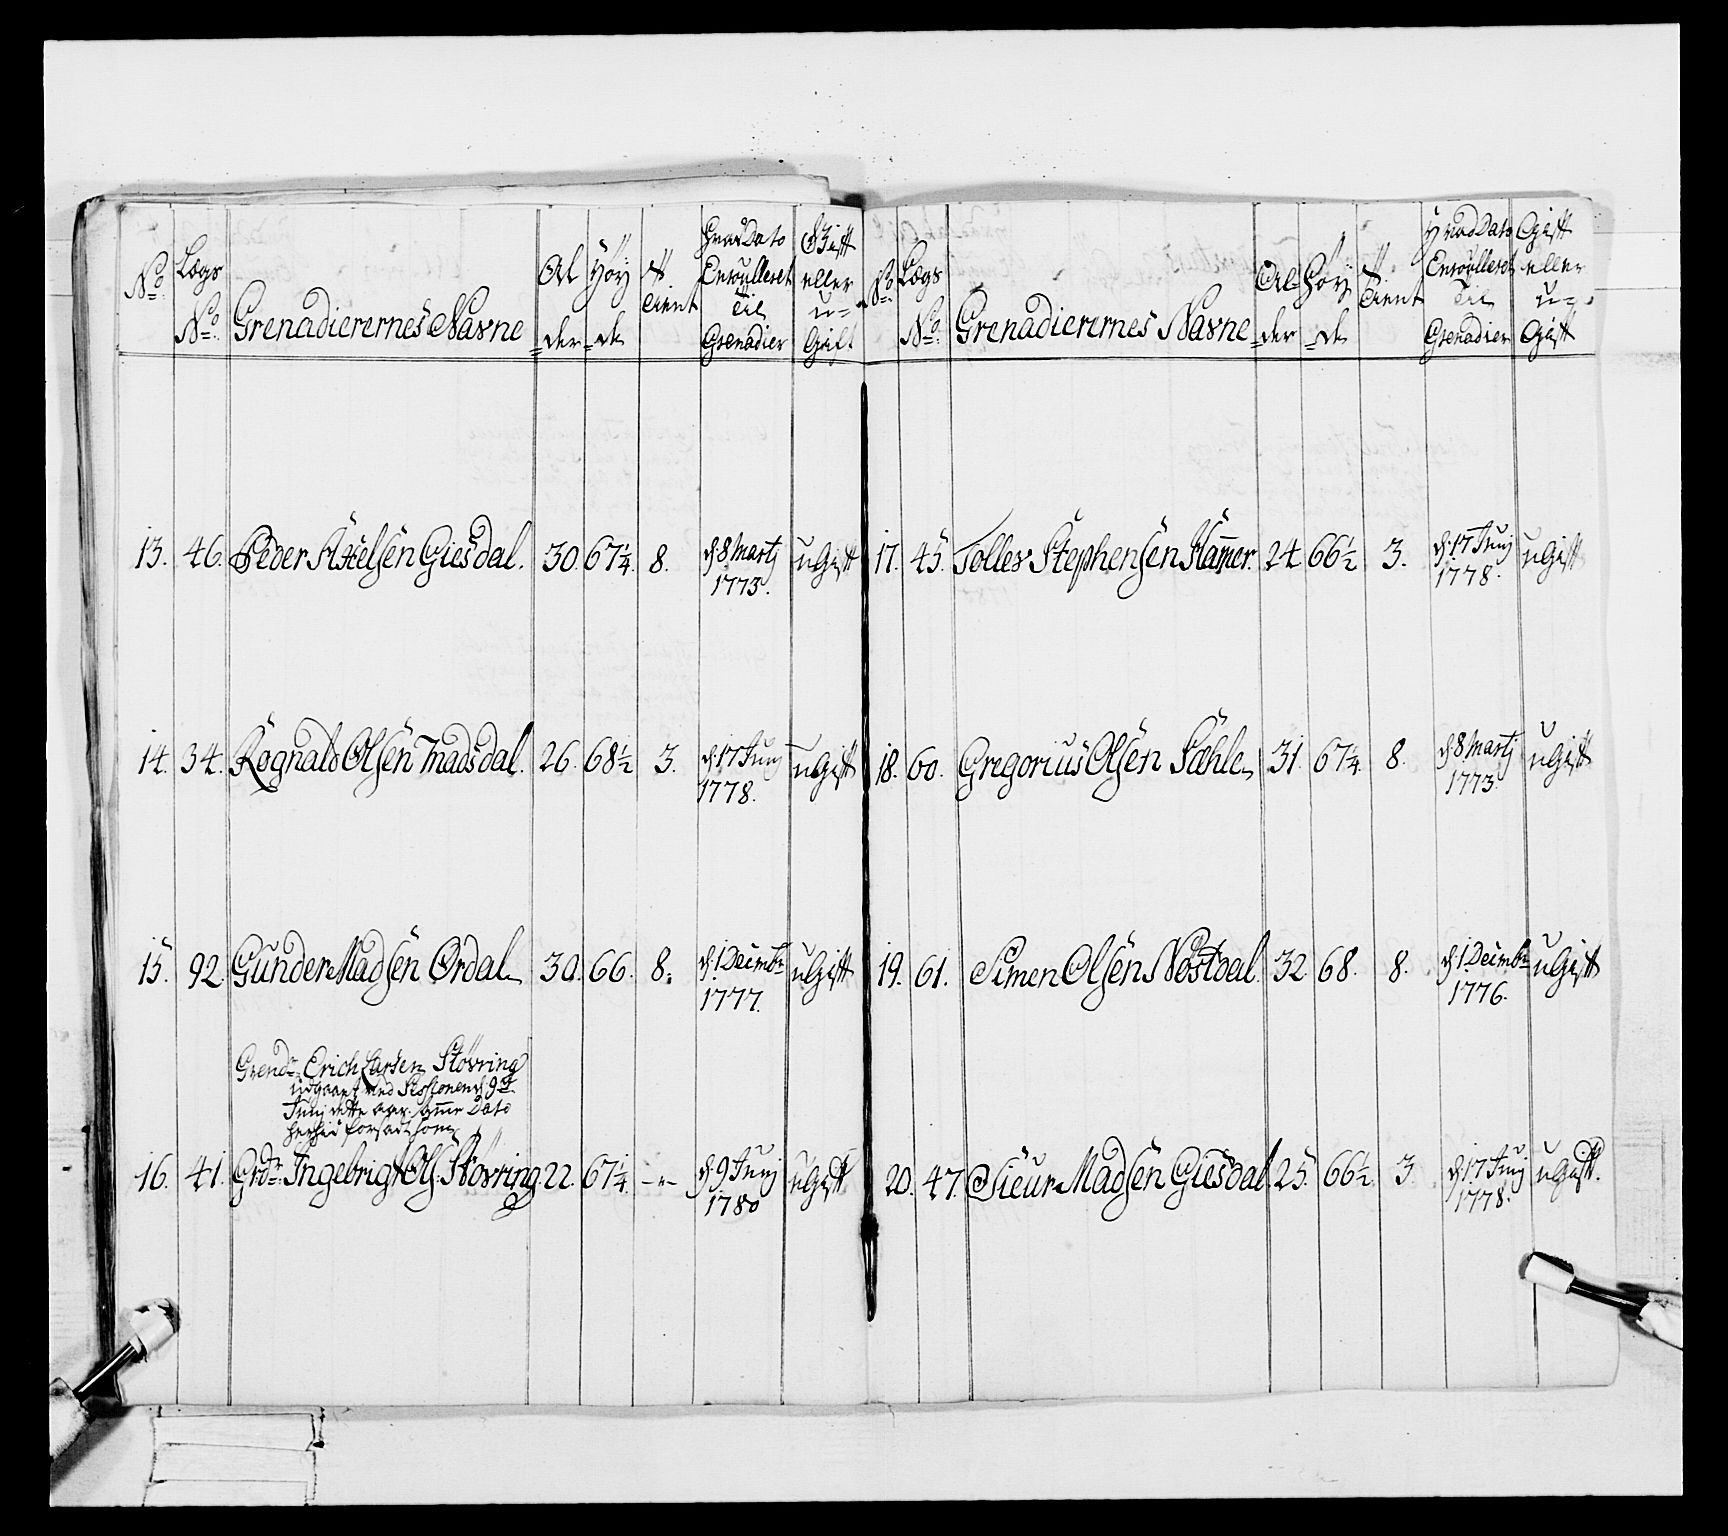 No.
Lægs No.
Grenadierernes Navne
Al=der
Höy=de
Tient
Hvad Dato Enroulleret Til Grenadier
Gift eller u=Gift
13. 46. Peder Axelsen Giesdal. 30. 67¼. 8. d. 8 Martj 1773. uGift
14. 34. Rognald Olsen Madsdal. 26. 68½ 3. d. 17 Junj 1778. uGift
15. 92. Gunder Madsen Ørdal 30. 66. 8. d. 1 Decembr 1777. uGift
Grendr. Erich Larsen Stövring
udgaaet ved Sessionen d. 9de
Junj dette aar. samme Dato
herved forsadt som
16. 41. Grdr. Ingebrigt Ols. Stövring 22. 67¼. -"- d. 9 Junj 1780 uGift
No.
Lægs No.
Grenadierernes Navne
Al=der
Höy=de
Tient
Hvad Dato Enroulleret Til Grenadier
Gift eller u=Gift
17. 45. Tolles Stephensen Hammer. 24 66½ 3. d. 17 Junj 1778. uGift
18. 60. Gregorius Olsen Sæhle 31. 67¼. 8. d. 8 Martj 1773. uGift
19. 61. Simen Olsen Nöstdal. 32 68. 8. d. 1 Decembr 1776. uGift
20. 47. Sieur Madsen Giesdal. 25. 66½. 3 d. 17 Junj 1778. uGift.